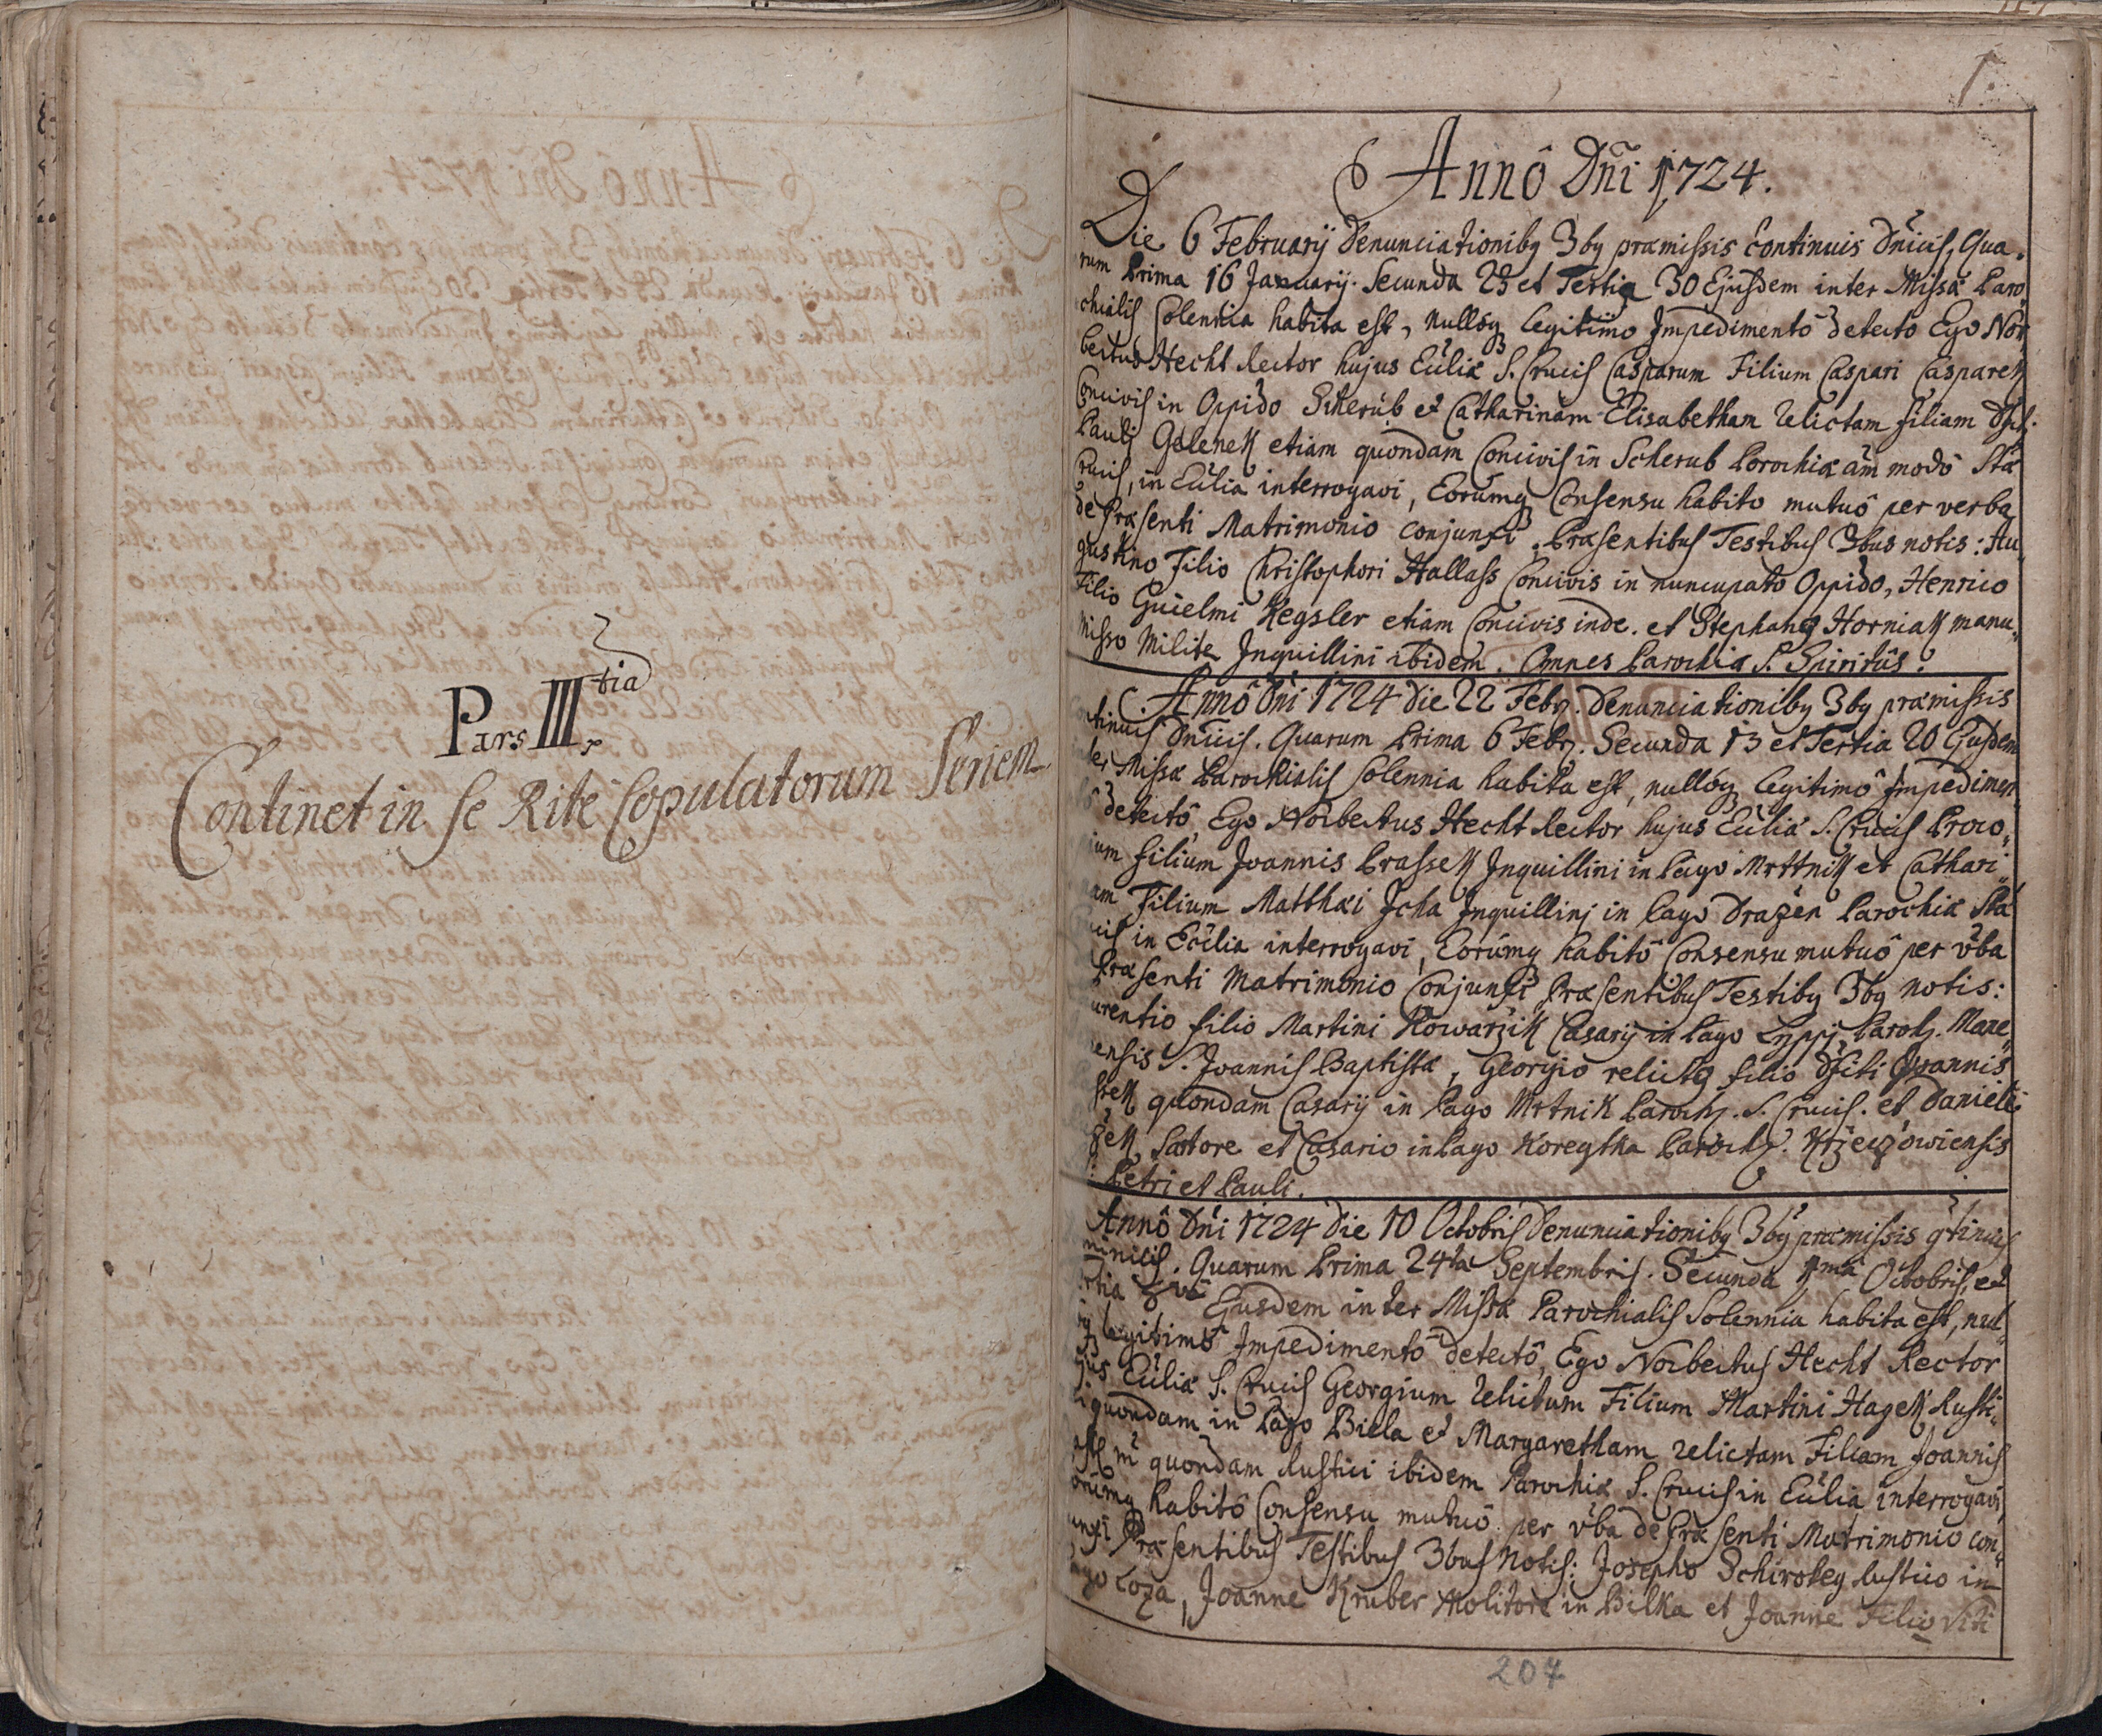 Pars III tia
Continet in se Rite Copulatorum Seriem
1
Annô Dñi 1724.
Die 6 Februarij Denunciationibq 3bq præmissis Continuis Dñicis, Qua-
rum Prima 16 Januarij. Secunda 23 et Tertia 30 Ejusdem inter Missæ Paro-
chialis Solennia habita est, nullóq legitimo Impedimentô detecto Ego Nor-
bertus Hecht Rector hujus Eccliæ S. Crucis Casparum Filium Caspari Casparek
Concivis in Oppido Scherub et Catharinam Elisabetham relictam filiam Dfti
Pauli Gelenek etiam quondam Concivis in Scherub Parochiæ am modô Stæ
Crucis, in Ecclia interrogavi, Eorumq Consensu habito mutuô per verba
de Præsenti Matrimonio conjunxi. Præsentibus Testibus 3bus notis: Au-
gustino Filio Christophori Hallass Concivis in nuncupato Oppido, Henrico
Filio Guielmi Kegsler etiam Concivis inde. et Stephano Horniak manu-
misso Milite Inquillini ibidem. Omnes Parochiæ S. Spiritûs.
Annô Dñi 1724 die 22 Febr. Denunciationibq 3bq præmissis
tinuis Dñicis. Quarum Prima 6 Febr. Secunda 13 et Tertia 20 Ejusdem
ter Missæ Parochialis Solennia habita est, nullóq legitimô Impedimen-
detectô, Ego Norbertus Hecht Rector hujus Eccliæ S. Crucis Proco-
ium filium Joannis Prassek Inquillini in Pago Mrttnik et Cathari-
am Filium Matthæi Icha Inquillinj in Pago Drazen Parochiæ Stæ
cis in Ecclia interrogavi, Eorumq habitô Consensu mutuô per vba
Præsenti Matrimonio Conjunxi Præsentibus Testibq 3bq notis:
urentio filio Martini Kowarzik Casarij in Pago Lippj, Paroch. Mane-
ensis S. Joannis Baptistæ, Georgio relicto filio Dfcti Joannis
ssek quondam Casarij in Pago Mrtnik Paroch. S. Crucis. et Daniele
zek Sartore et Casario in Pago Koregtka Paroch. Krzeczowiensis
Petri et Pauli.
Annô Dñi 1724 Die 10 Octobris Denunciationibq 3bq præmissis qtinuis
minicis. Quarum Prima 24ta Septembris. Secunda 1ma Octobris, et
rtia 8va Ejusdem inter Missæ Parochialis Solennia habita est, nul-
legitimô Impedimentô detectô, Ego Norbertus Hecht Rector
jus Eccliæ S. Crucis Georgium relictum Filium Martini Hagek Rusti-
quondam in Pago Biela et Margaretham relictam Filiam Joannis
quondam Rustici ibidem Parochiæ S. Crucis in Ecclia interrogavi,
orumq habitô Consensu mutuô per vba de Præsenti Matrimonio con-
unxi Præsentibus Testibus 3bus Notis: Josepho Schiroky Rustico in
ago Loza, Joanne Kruber Molitore in Bilka et Joanne Filio Viti
207